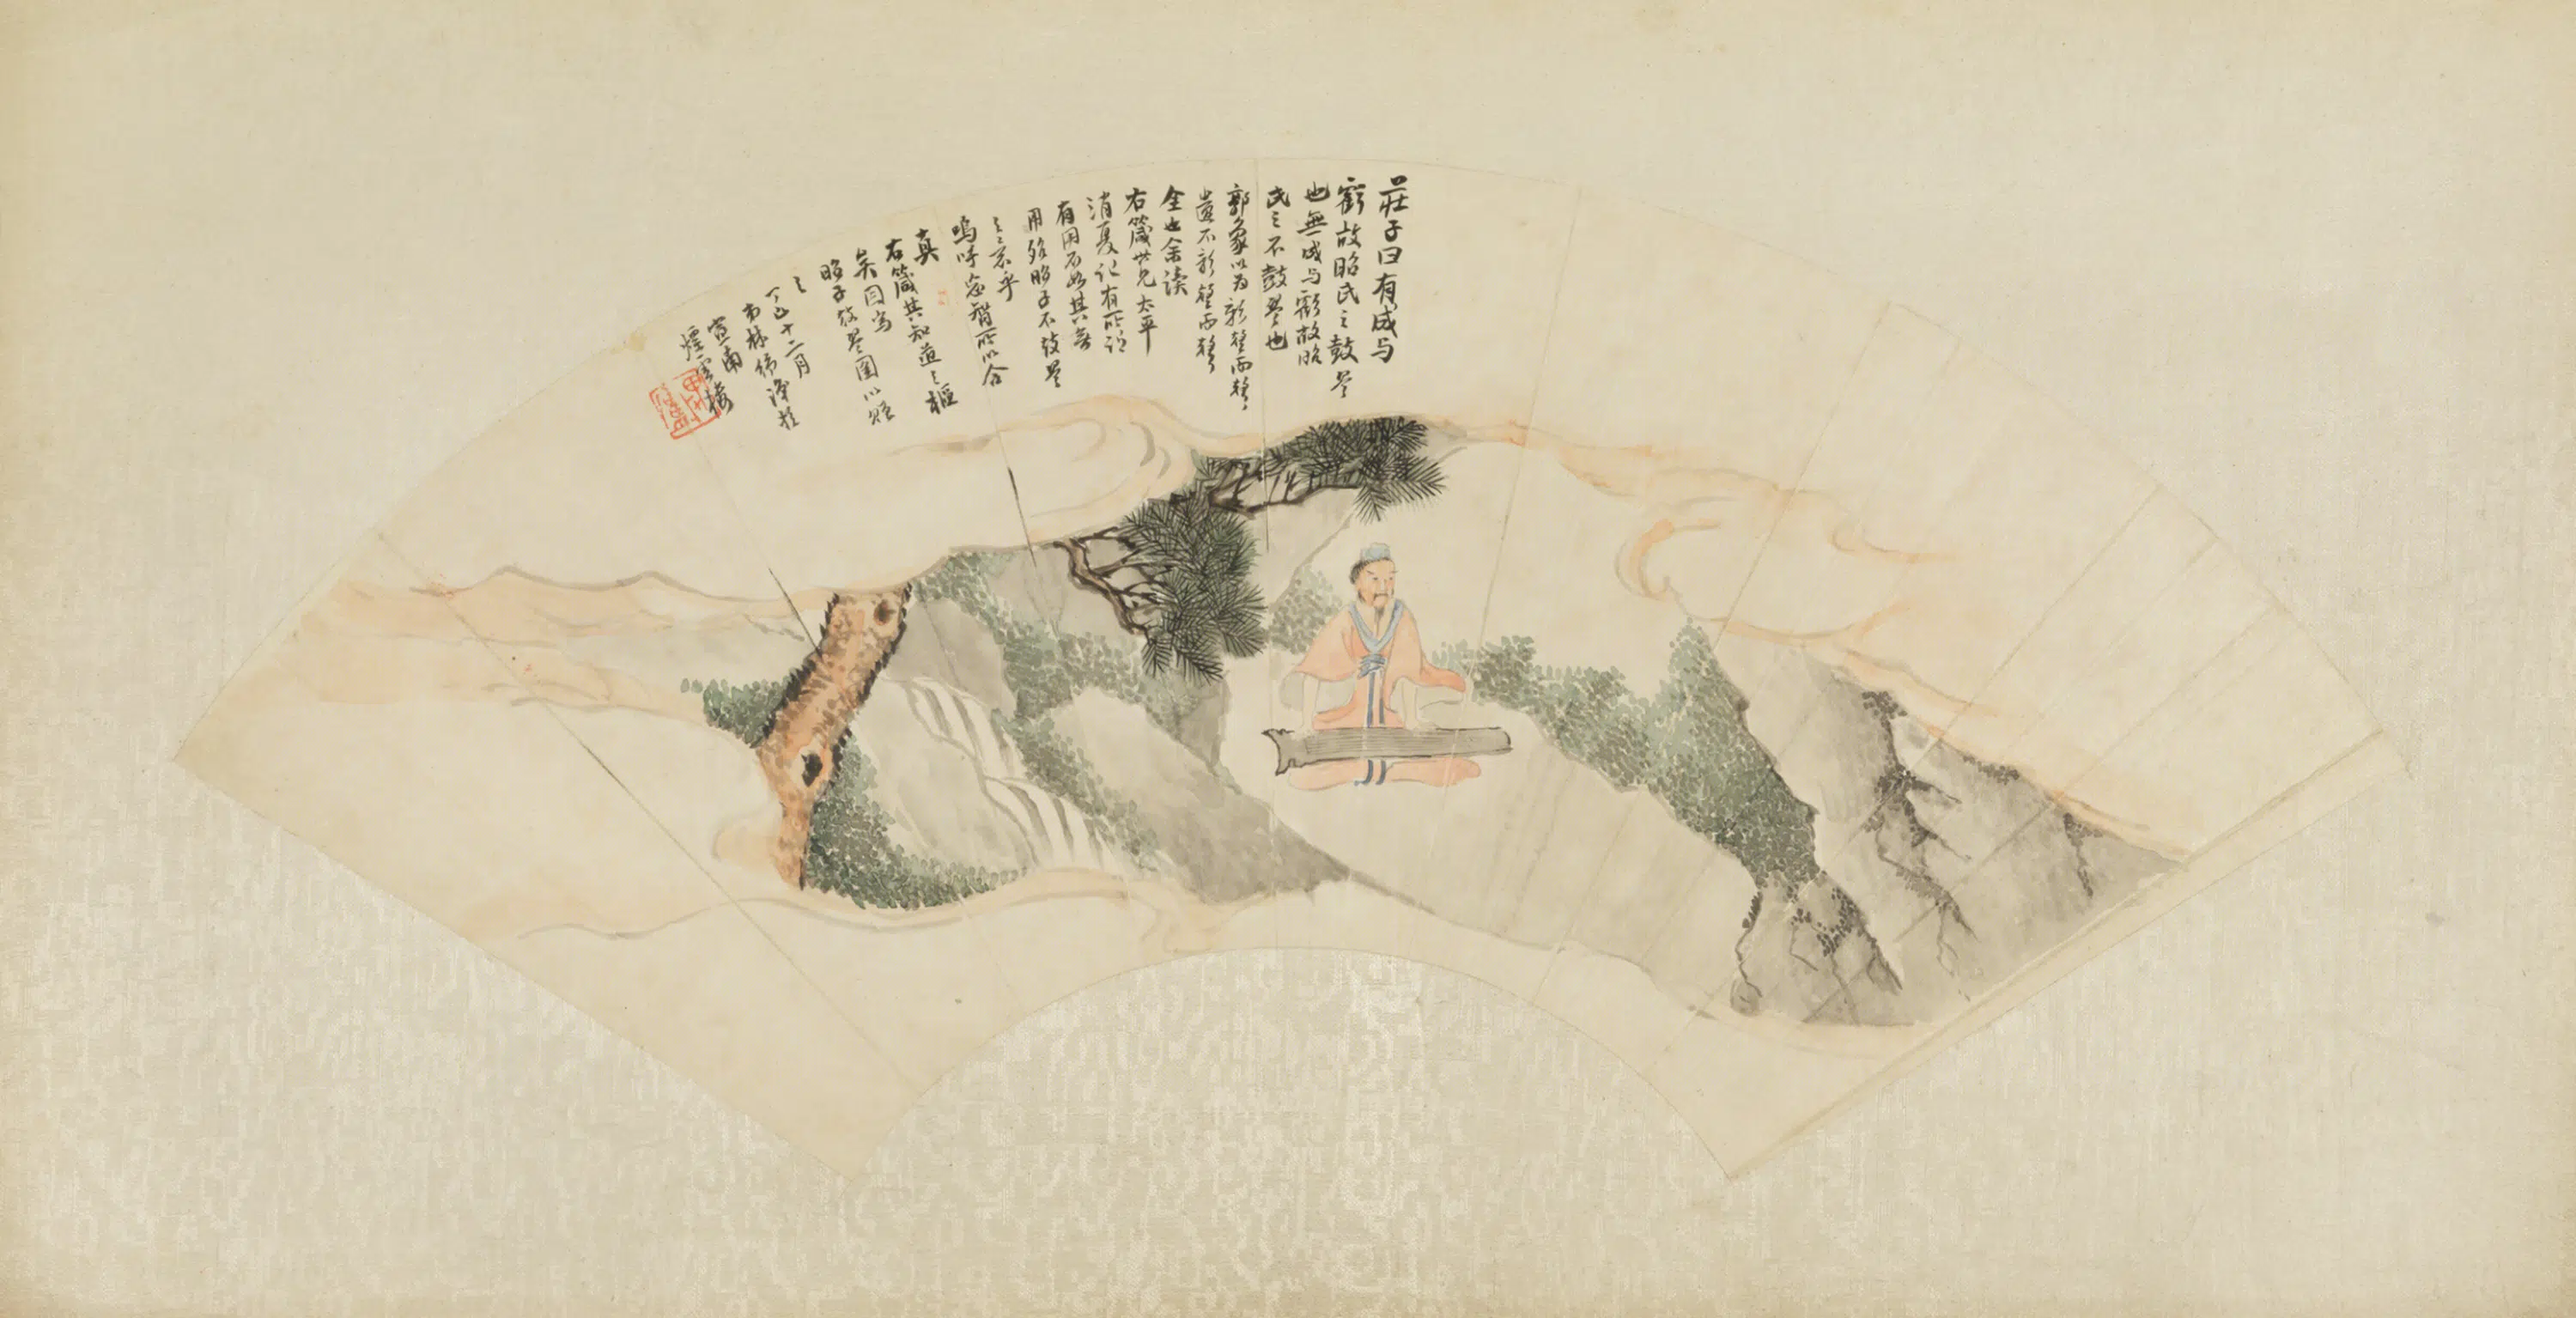 莊子曰有成与
虧故昭氏之鼓琴
也無成与虧故昭
氏之不鼓琴也
郭象以为彰聲而聲
遺不彰聲而聲
全也余讀
右箴世兄太平
消夏记有所谓
有用不如其無
用殆昭子不鼓琴
之乎
嗚呼忘智所以合
真
右箴其知道之樞
矣因寫
昭子鼓琴圖以貽
之
丁巳十二月
林紓識於
宣南
煙雲樓